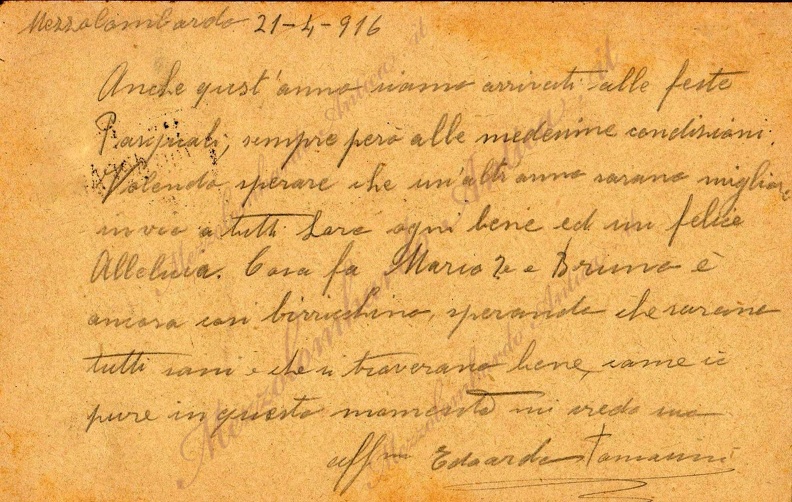 Mezzolombardo 21-4-916
Anche quest'anno siamo arrivati alle feste
Pasquali, sempre però alle medesime condizioni.
Volendo sperare che un'altr anno sarano migliori
invio a tutti Loro ogni bene ed un felice
Alleluia. Cosa fa Mario? e Bruno è
ancora cosi birrichino, sperando che sarano
tutti sani e che si troverano bene, come io
pure in questo momento mi credo suo
aff.mo Edoardo Tomasini
Mezzolombardo Antico.it